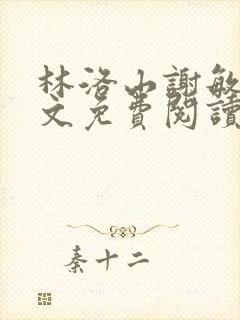 林洛山謝敏
文免費閱讀
秦十二